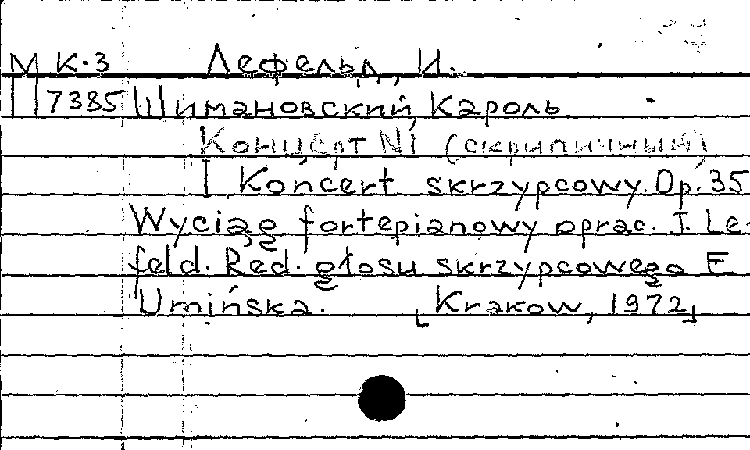 М К-3 Лефельд, И.
7385 Шимановский, Кароль
Концерт N1 (скрипичный)
I Koncert skrzypcowy. Op. 35
Wyciąg fortepianowy oprac. J. Le-
feld. Red. głosu skrzypcowego E.
Umińska. [Krakow, 1972]